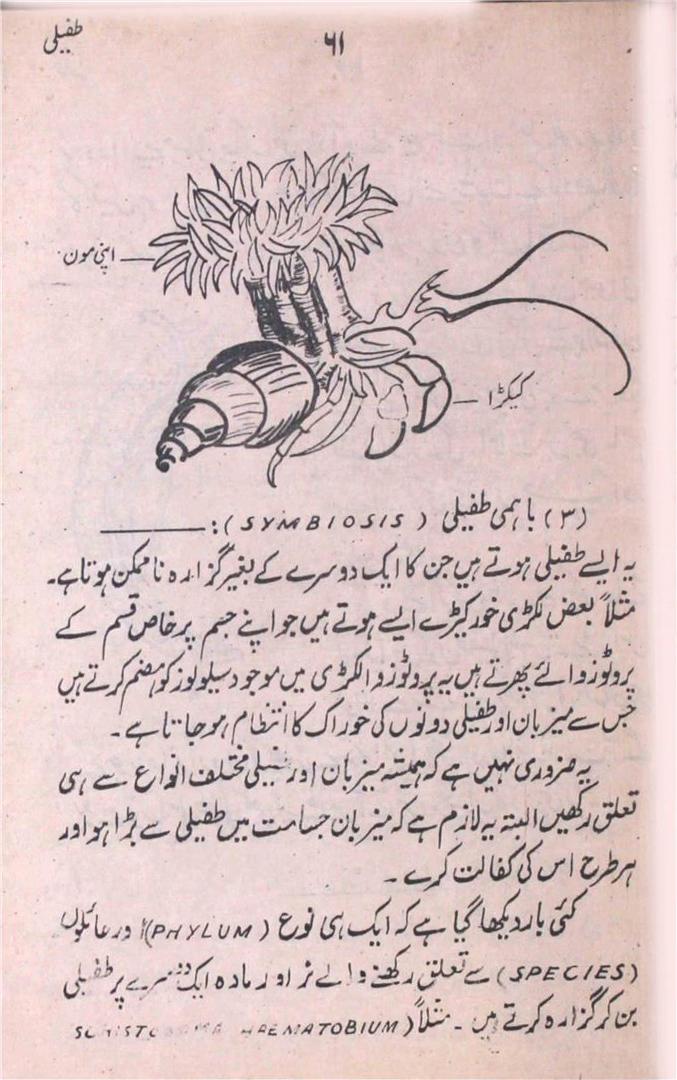 طفیلی
۶۱
اپنی مون
کیکڑا
(۳) باہمی طفیلی (SYMBIOSIS):
یہ ایسے طفیلی ہوتے ہیں جن کا ایک دوسرے کے بغیر گزارہ ناممکن ہوتا ہے۔
مثلاً بعض لکڑی خور کیڑے ایسے ہوتے ہیں جو اپنے جسم پر خاص قسم کے
پروٹوزوا لئے پھرتے ہیں یہ پروٹوزوا لکڑی میں موجود سیلولوز کو ہضم کرتے ہیں
جس سے میزبان اور طفیلی دونوں کی خوراک کا انتظام ہو جاتا ہے۔
یہ ضروری نہیں ہے کہ ہمیشہ میزبان اور طفیلی مختلف انواع سے ہی
تعلق رکھیں البتہ یہ لازم ہے کہ میزبان جسامت میں طفیلی سے بڑا ہو اور
ہر طرح اس کی کفالت کرے۔
کئی بار دیکھا گیا ہے کہ ایک ہی نوع (PHYLUM) اور عائلوں
(SPECIES) سے تعلق رکھنے والے نر اور مادہ ایک دوسرے پر طفیلی
بن کر گزارہ کرتے ہیں۔ مثلاً (HAEMATOBIUM